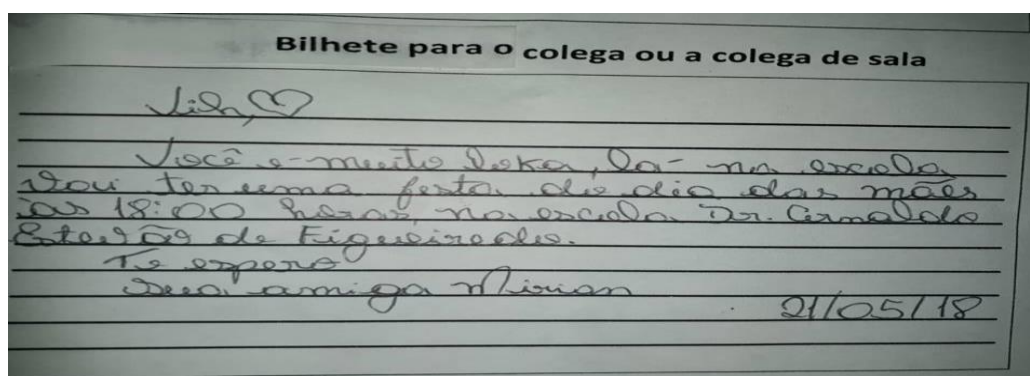 Bilhete para o colega ou a colega de sala
Você e muito, la na escola
vou ter uma festa do dia das mães
às 18:00 horas, na escola Dr. Arnaldo
Estevão de Figueiredo.
Te espero
Sua amiga Mirian
21/05/18